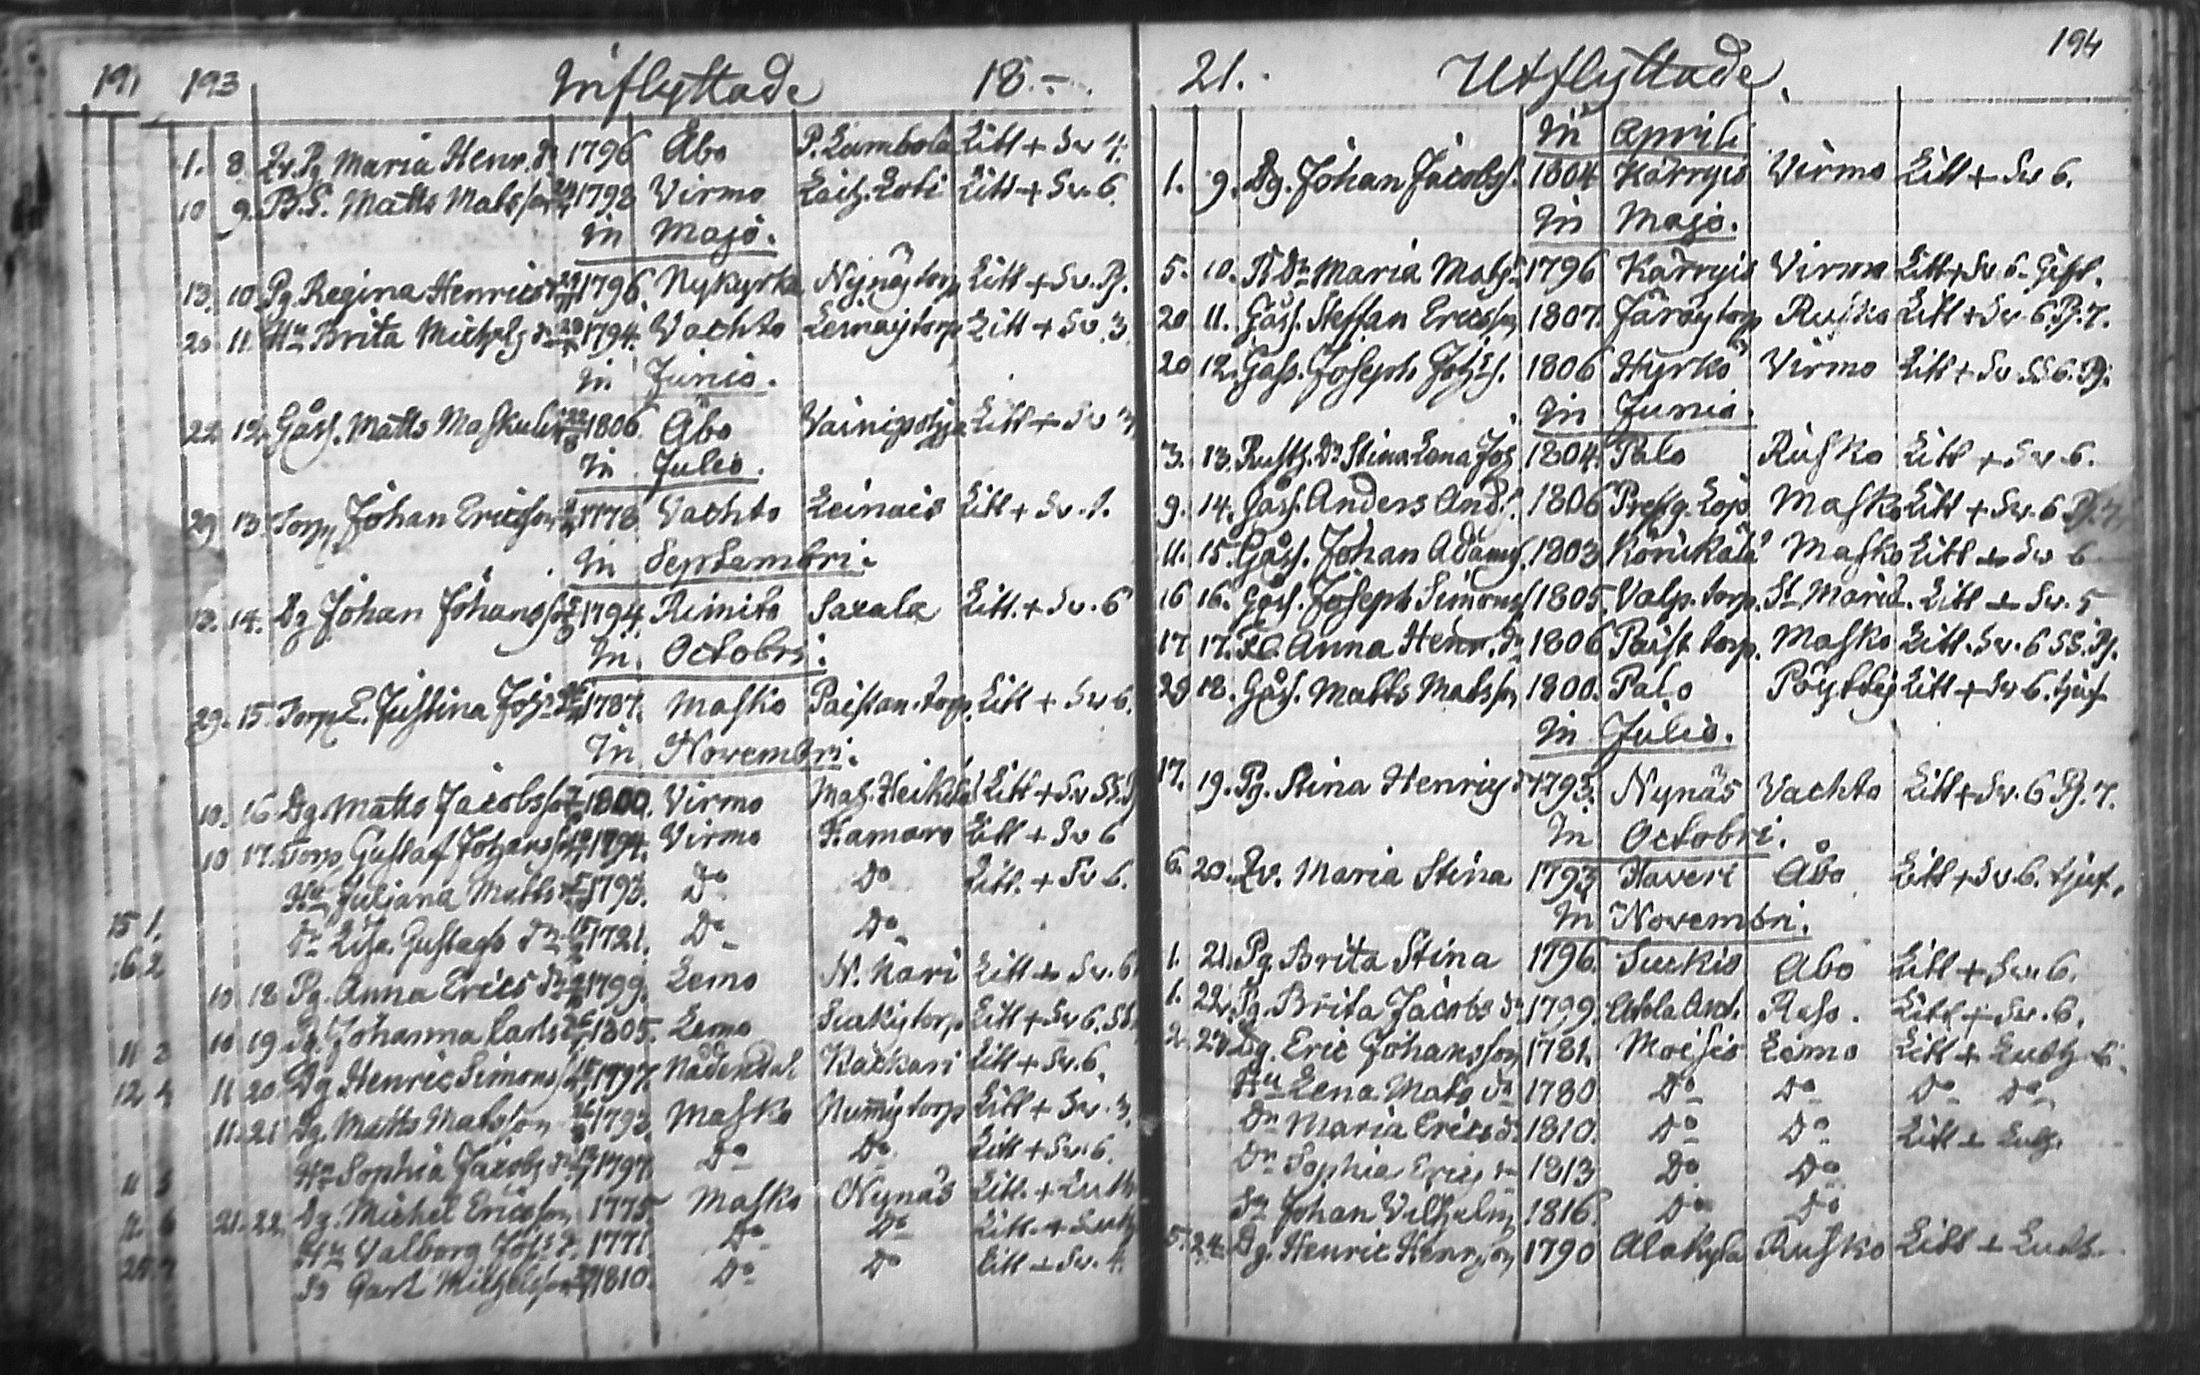 191 193 Inflyttade 18.-.
1. 8. Maria Henr. dr 1796 Åbo P. Lambola Litt + Sv 4.
10 9. B.S. Matts Matsson 1798 Virmo Litt + Sv. 6.
In Majo.
13. 10 Pg Regina Henrics dr 1796. Nykyrka Nynäs torp Litt + Sv. Pj.
20. 11. Hu Brita Michels dr 1794. Vachto Lemais torp Litt + Sv. 3.
In Junio.
22 12. Gåss. Matts Maskulin 1806 Åbo Vainiopolya Litt + Sv
In Julio.
29 13. Torp Johan Ericsson 1778. Vachto Leinais Litt + Sv. 1.
In Septembri.
13. 14. Dg Johan Johansson 1794. Rimito Saxala Litt. + Sv. 6
In. Octobri.
29. 15. Torp E. Justina 1787. Masko Paistan torp. Litt + Sv 6.
In Novembri.
10. 16. Dg. Matts Jacobsson 1800. Virmo Litt + Sv
10 17. Torp Gustaf Johansson 1794. Virmo Kamaro Litt + Sv 6
Hu Juliana Matts dr 1793. Do Do Litt. + Sv 6.
15 1. Dr Lisa Gustafs dr 1721. Do Do
16 2 10 18 Pg. Anna Erics dr 1799. Lemo N. Kari Litt + Sv. 6
10 19. Pg. Johanna Carls dr 1805. Lemo Suckis torp Litt + Sv 6. SS.
11 3 11 20. Dg Henric Simonss 1797. Nådendal Kackari Litt + Sv. 6.
12 4 11. 21 Dg. Matts Matsson 1793. Masko Nummis torp Litt + Sv. 3.
Hu Sophia Jacobs dr 1797. Do Do Litt + Sv. 6.
11 5 21. 22. Dg. Michel Ericsson 1775. Masko Nynäs Litt. + Luth
11. 6 Hu Valborg Johs dr. 1771. Do Do Litt + Luth
25. 7 Sn Carl Michelsson 1810. Do Do Litt + Sv. 4.
21. Utflyttade. 194
In Aprili
1. 9. Dg. Johan Jacobss. 1804 Karrais Virmo Litt + Sv 6.
In Majo.
5. 10. B. Dr Maria Mats 1796 Karrais Virmo Litt + Sv 6. Gift.
20 11. Gåss. Steffan Ericsson 1807. Järäis torp Rusko Litt + Sv. 6. Pj. 7.
20 12. Gåss. Joseph 1806 Hyrko Virmo Litt + Sv SS 6. Pj.
In Junio.
3. 13. Rusth. Dr Stina Lena Joh 1804. Palo Rusko Litt + Sv 6.
9. 14. Gåss. Anders And. 1806 Masko Litt + Sv. 6 Pj. 7.
11. 15. Gåss. Johan Adams. 1803. Körickälä Masko Litt + Sv 6
16 16. Gåss. Joseph Simons 1805. Valp. torp. St Marie. Litt + Sv. 5
17 17. Anna Henr. dr 1806 Paist torp. Masko Litt. Sv. 6 SS. Pj.
29 18. Gåss. Matts Matsson 1800. Palo Pöyttis Litt + Sv 6.
In Julio.
17. 19. Pg. Stina Henrics dr 1793. Nynäs Vachto Litt + Sv. 6 Pj. 7.
In Octobri.
6. 20. Maria Stina 1793 Haveri Åbo Litt + Sv 6.
In Novembri.
1. 21. Pg. Brita Stina 1796. Suckis Åbo Litt + Sv. 6.
1. 22. Pg. Brita Jacobs dr 1799. Reso. Litt + Sv. 6.
2. 23. Dg. Eric Johansson 1781. Moisis Lemo Litt + Luth 6.
Hu Lena Mats dr 1780 Do Do Do Do
Dr Maria Erics dr. 1810. Do Do Litt + Luth.
Dr Sophia Erics dr 1813 Do Do
Sn Johan Vilhelm 1816. Do Do
5. 24. Dg. Henric Henrsson 1790 Alakyla Rusko Litt + Luth